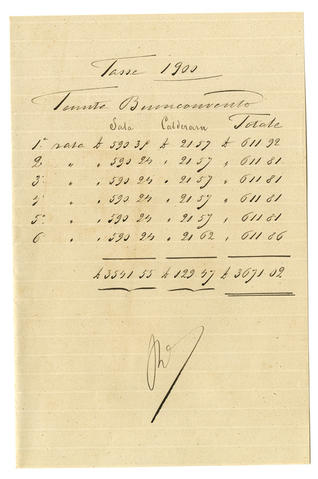 Tasse 1900
Tenuta Buonconvento
Sala Calderara Totale
1ª rata £ 590 35 £ 21 57 £ 611 92
2ª " " 590 24 " 21 57 " 611 81
3ª " " 590 24 " 21 57 " 611 81
4ª " " 590 24 " 21 57 " 611 81
5ª " " 590 24 " 21 57 " 611 81
6ª " " 590 24 " 21 62 " 611 86
£ 3541 55 £ 129 47 £ 3671 02